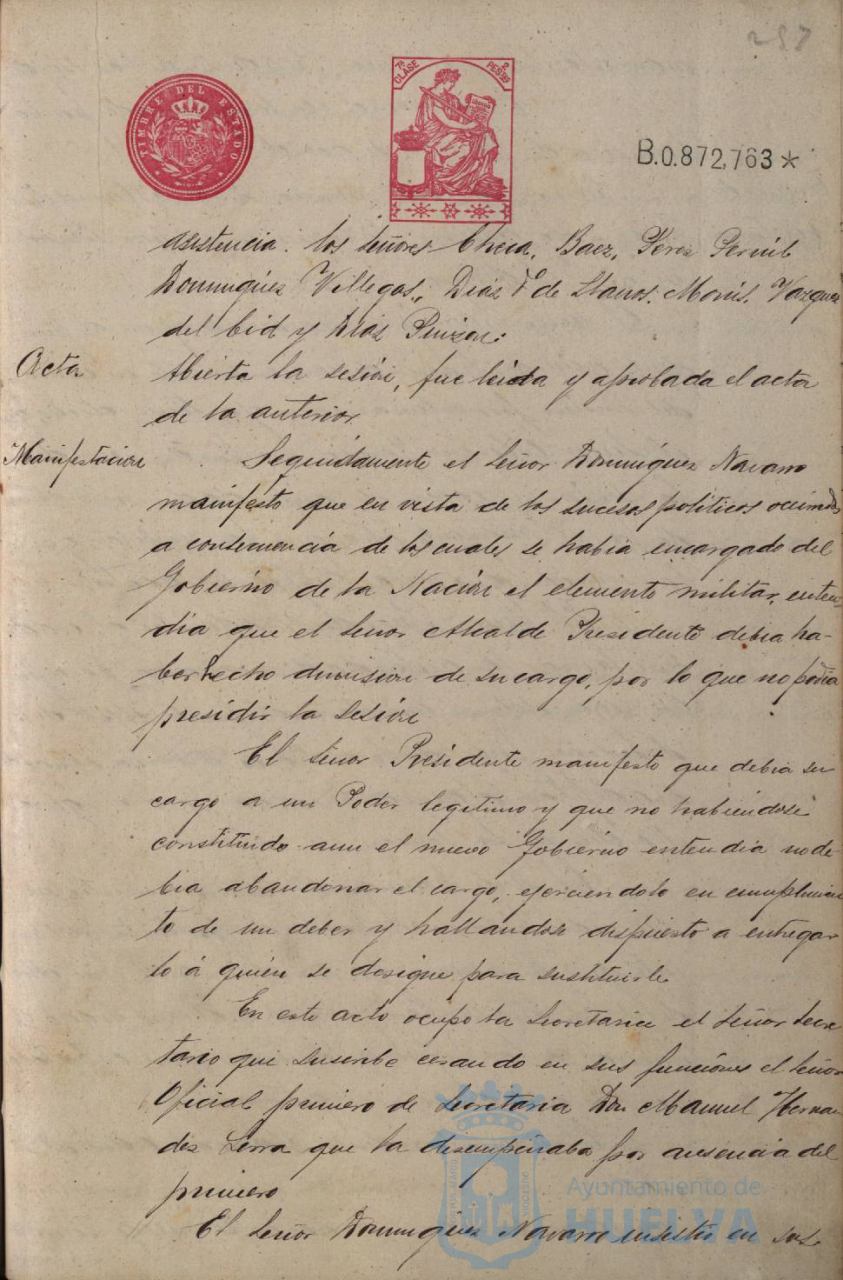 257
TIMBRE DEL ESTADO
7ª CLASE 2 PESETAS
B.0.872,763*
asistencia los Señores Checa, Baez, Pérez
Dominguez Villegas, Diaz de Llanos, Vazquez
del Cid y Diaz Pinzon.
Acta
Abierta la sesión, fue leida y aprobada el acta
de la anterior
Manifestación
Seguidamente el Señor Dominguez Navarro
manifestó que en vista de los sucesos políticos ocurridos
a consecuencia de los cuales se habia encargado del
Gobierno de la Nación el elemento militar, enten-
dia que el Señor Alcalde Presidente debia ha-
ber hecho dimision de su cargo, por lo que no podia
presidir la sesión
El Señor Presidente manifesto que debia su
cargo a un Poder legitimo y que no habiendose
constituido aun el nuevo Gobierno entendia no de-
bia abandonar el cargo, ejerciendolo en cumplimien
to de un deber y hallandose dispuesto a entregar
lo á quien se designe para sustituirle
En este acto ocupo la Secretaria el Señor Secre
tario que suscribe cesando en sus funciones el Señor
Oficial primero de Secretaria Don Manuel Hernan
dez que la desempeñaba por ausencia del
primero
El Señor Dominguez Navarro insistió en sus
Ayuntamiento de
HUELVA